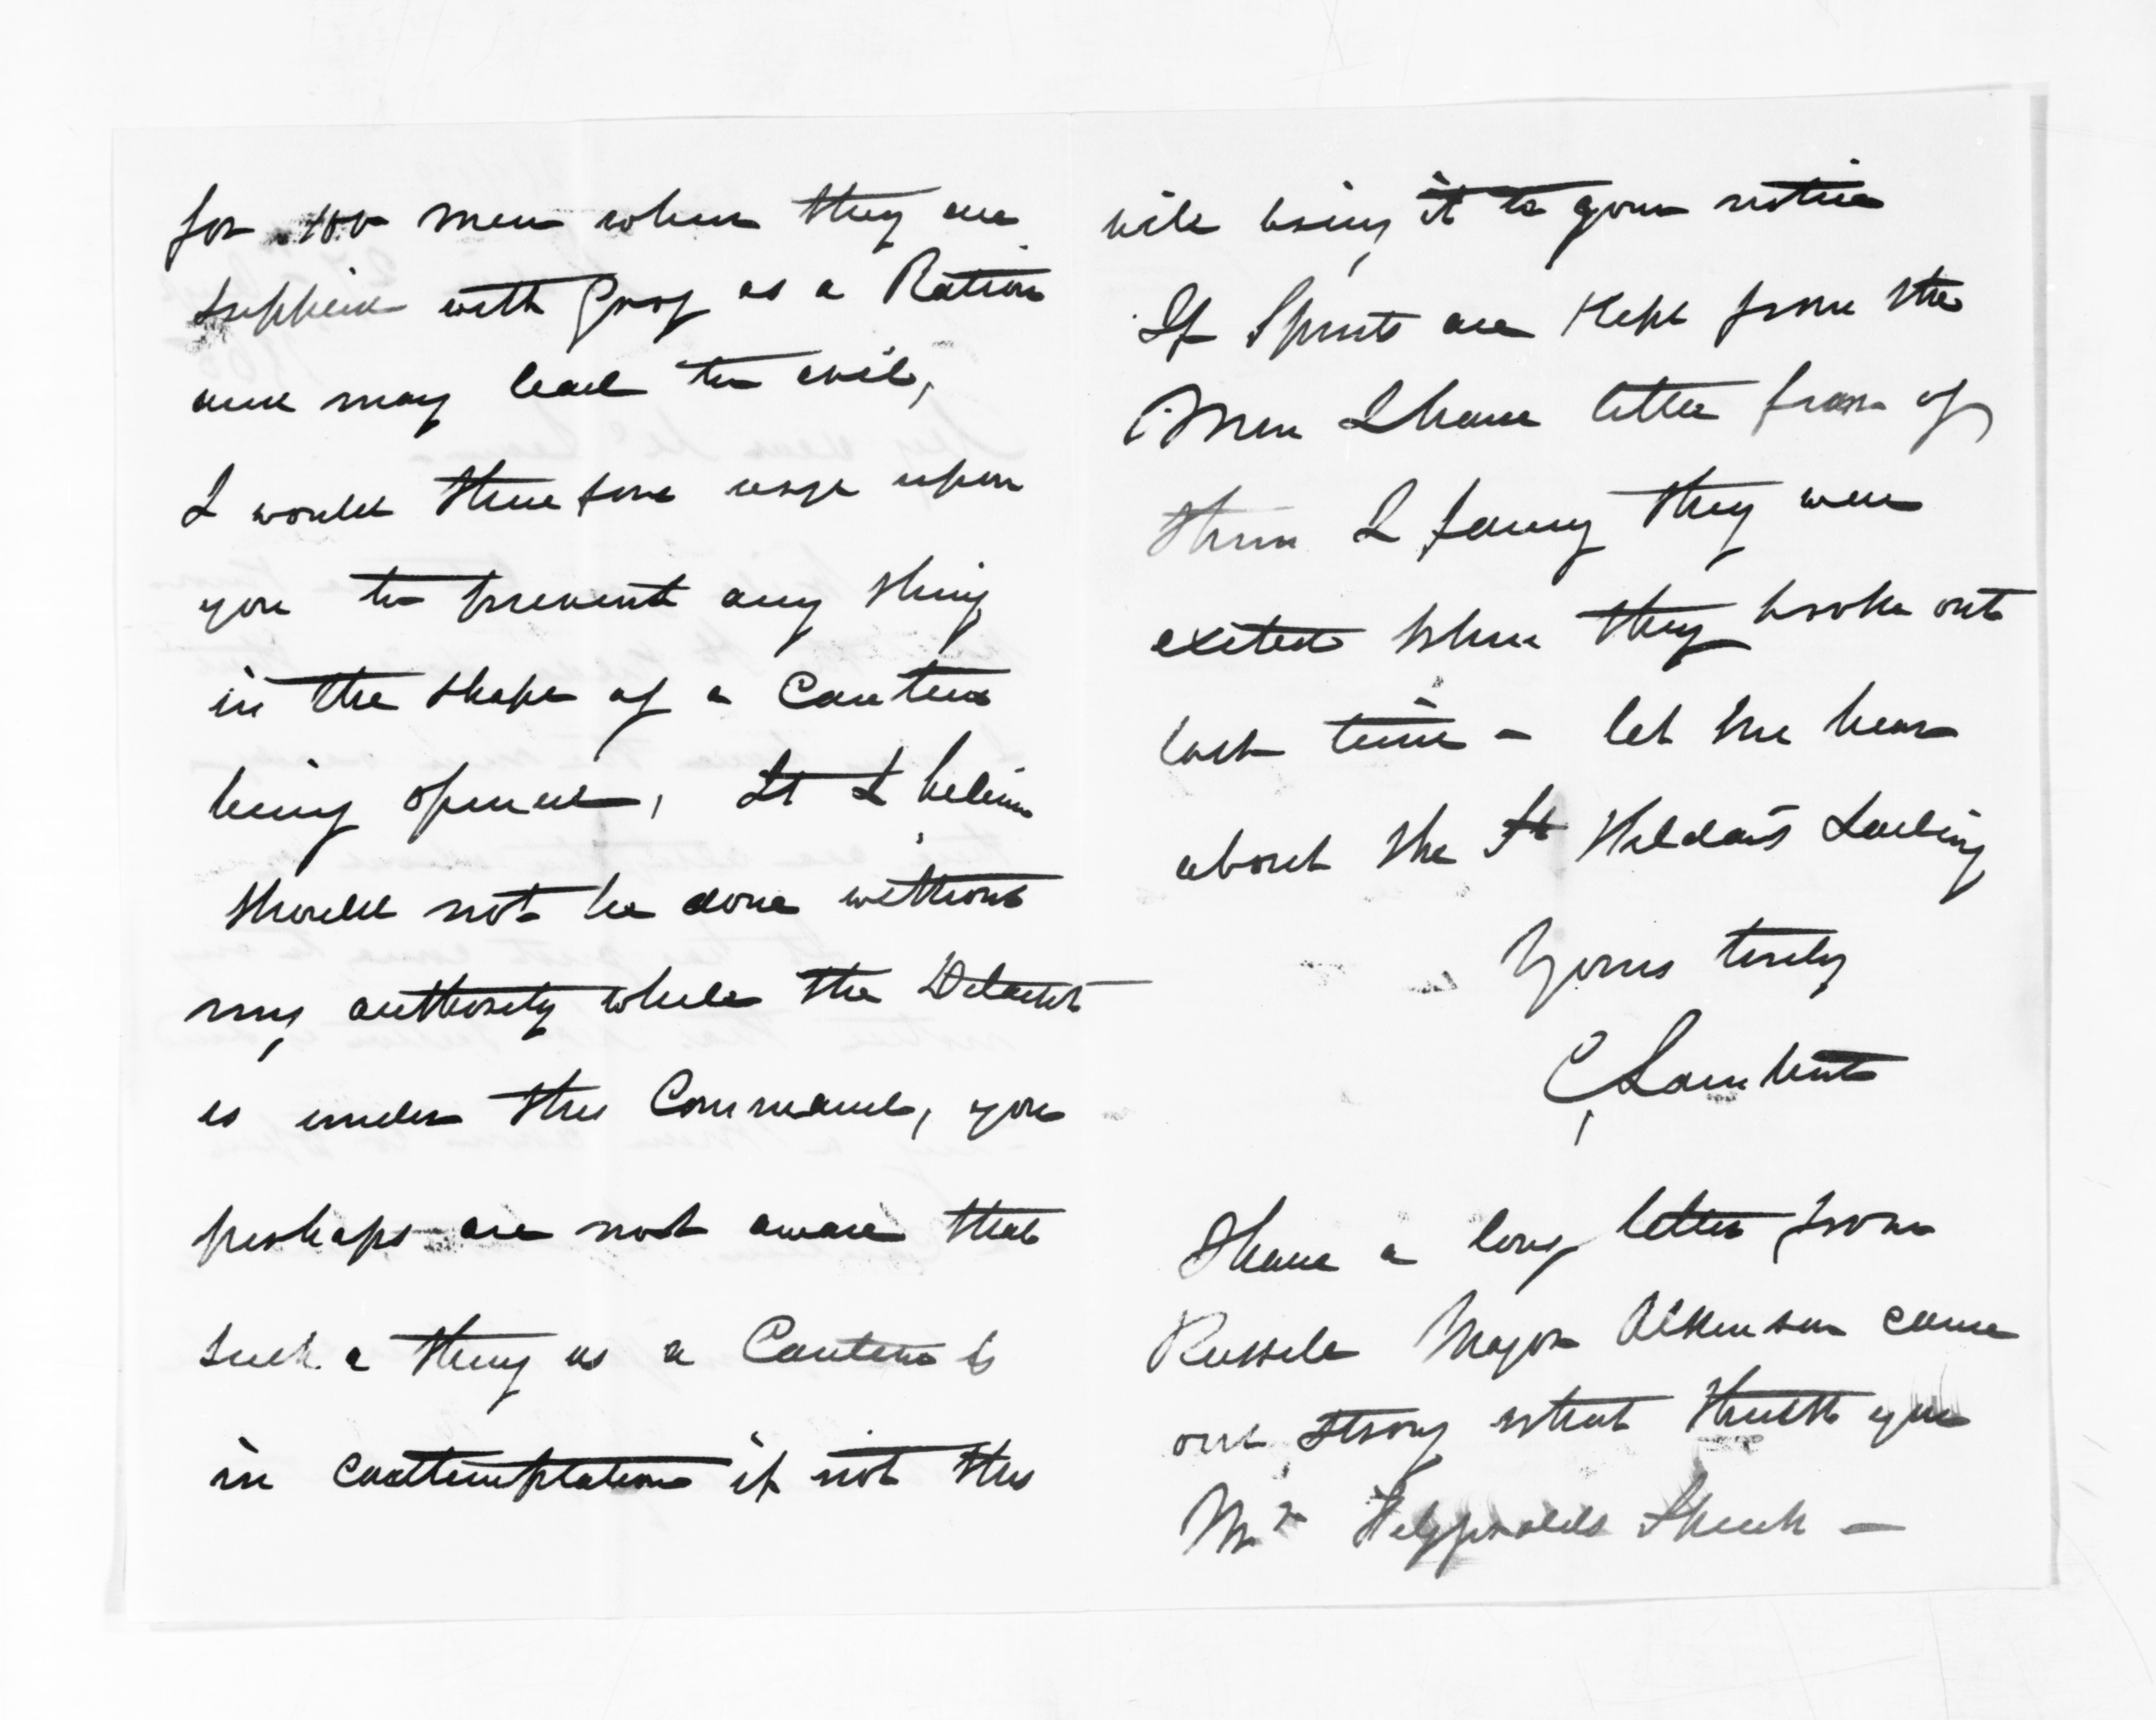 for 100 men when they are
supplied with Grog as a Ration
and may lead to evil,
I would therefore urge upon
you to prevent any thing
in the shape of a Canteen
being opened, It I believe
should not be done without
my authority while the Detacht
is under this Command, you
perhaps are not aware that
such a thing as a Canteen is
in contemplation if not this
will bring it to your notice
If Spirits are Kept from the
Men I have little fear of
them I fancy they were
exited when they broke out
last time - let me hear
about the St Kilda's Sailing
Yours truly
C Lambert
I have a long letter from
Russell Major Atkinson came
out strong what think you
Mr Fitzgeralds Speech -